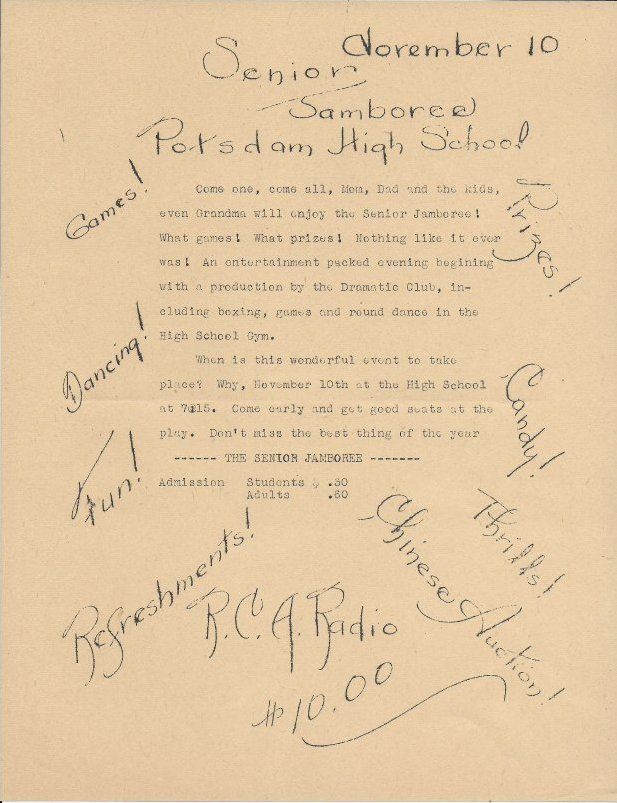 November 10
Senior
Jamboree
Potsdam High School
Games!
Prizes!
Come one, come all, Mom, Dad and the kids,
even Grandma will enjoy the Senior Jamboree!
What games! What prizes! Nothing like it ever
was! An entertainment packed evening begining
with a production by the Dramatic Club, in-
cluding boxing, games and round dance in the
High School Gym.
When is this wonderful event to take
place? Why, November 10th at the High School
at 7:15. Come early and get good seats at the
play. Don't miss the best thing of the year
------ THE SENIOR JAMBOREE -------
Admission Students .30
Adults .60
Dancing!
Candy!
Fun!
Thrills!
Chinese Auction!
Refreshments!
R.C.A. Radio
$10.00